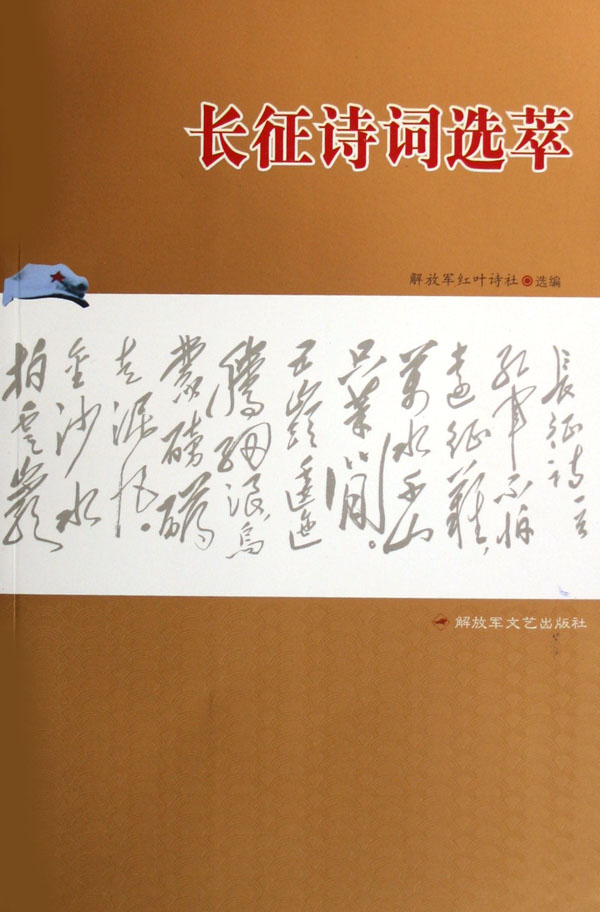 长征诗词选萃
解放军红叶诗社 选编
長征詩一首
红軍不怕
遠征難，
萬水千山
只等閒。
五嶺逶迤
騰細浪，烏
蒙磅礴
走泥丸。
金沙水
拍雲
解放军文艺出版社